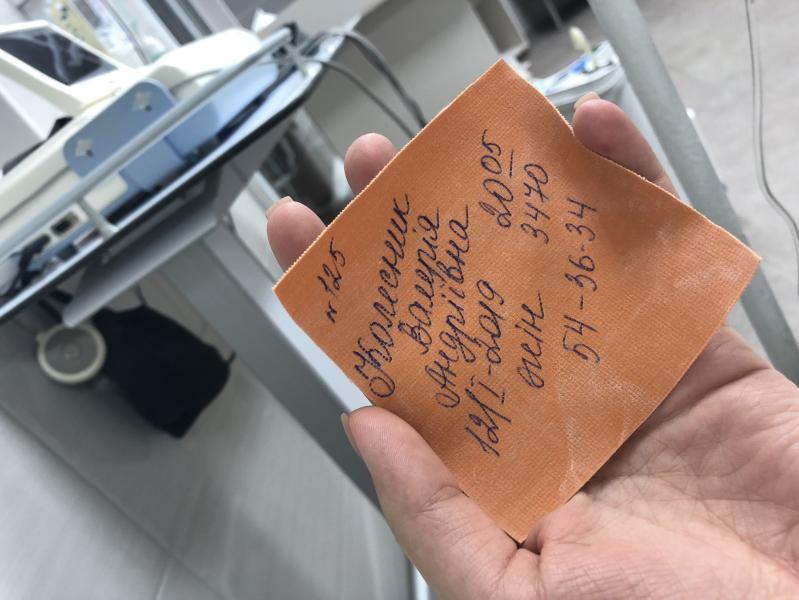 № 125
Колесник
Валерія
Андріївна
12/I-2019 20 05
жін 3470
54-36-34